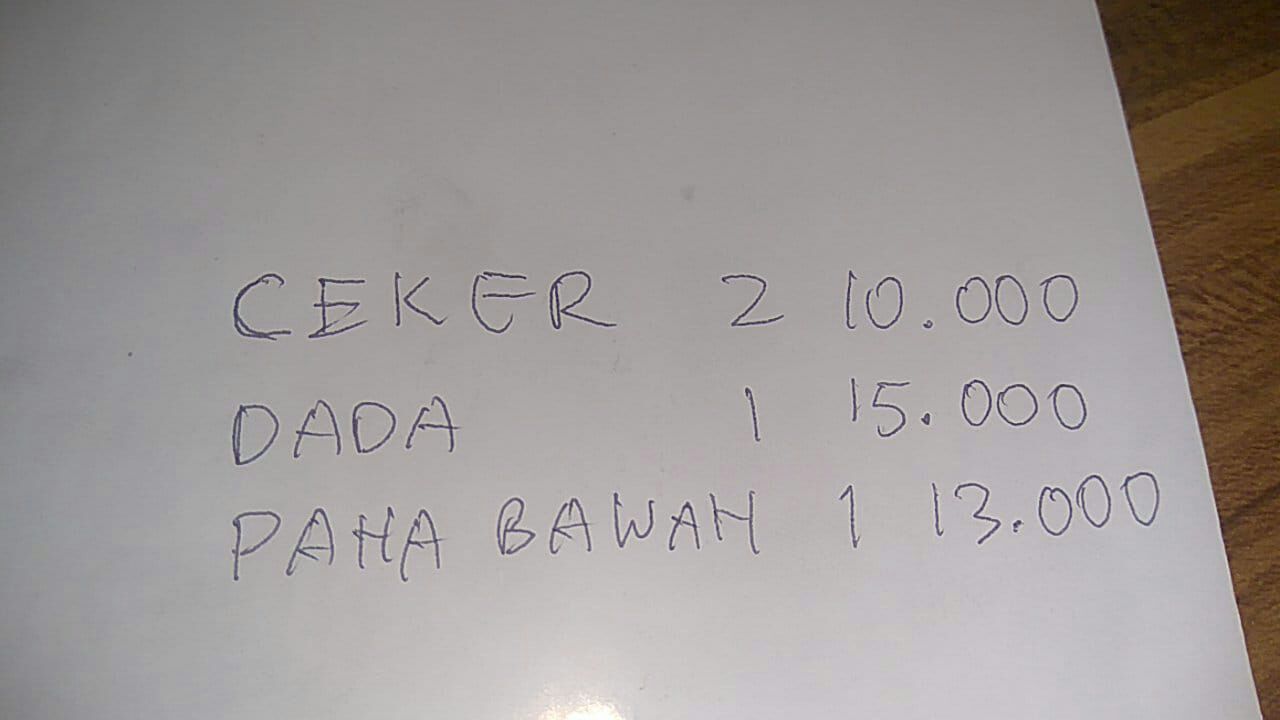 CEKER 2 10.000
DADA 1 15.000
PAHA BAWAH 1 13.000